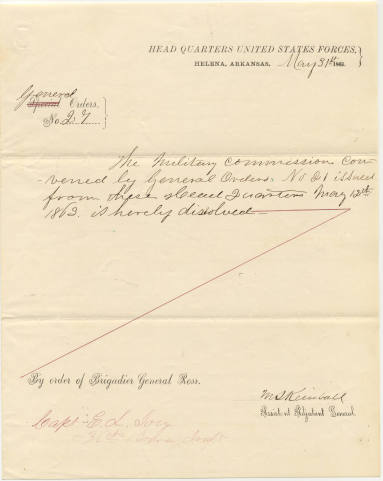 HEAD QUARTERS UNITED STATES FORCES,
HELENA, ARKANSAS. May 31st 1863.
General
Special Orders.
No. 27.
The Military Commission Con-
-vened by General Orders No 21 issued
from these Head Quarters May 12th
1863. is hereby dissolved
By order of Brigadier General Ross.
Assistant Adjutant General.
Capt E. L.
36th Iowa Inft